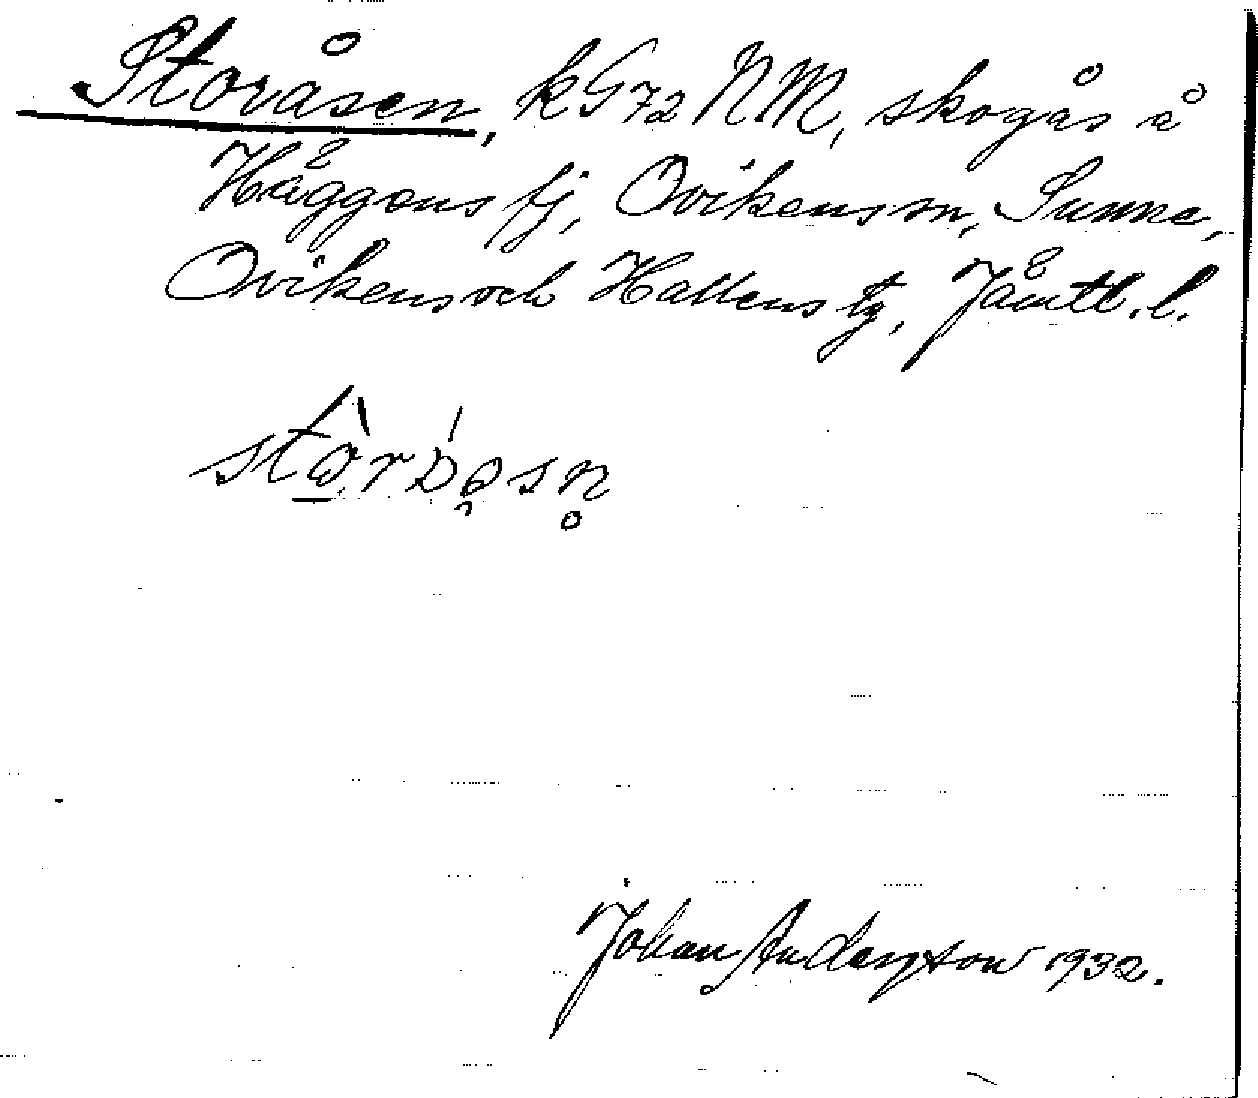 Storåsen, kG72 NM, skogås å
Häggens fj, Ovikens sn, Sunne,
Ovikens och Hallens tg, Jämtl. l.
Johan Anderzson 1932.